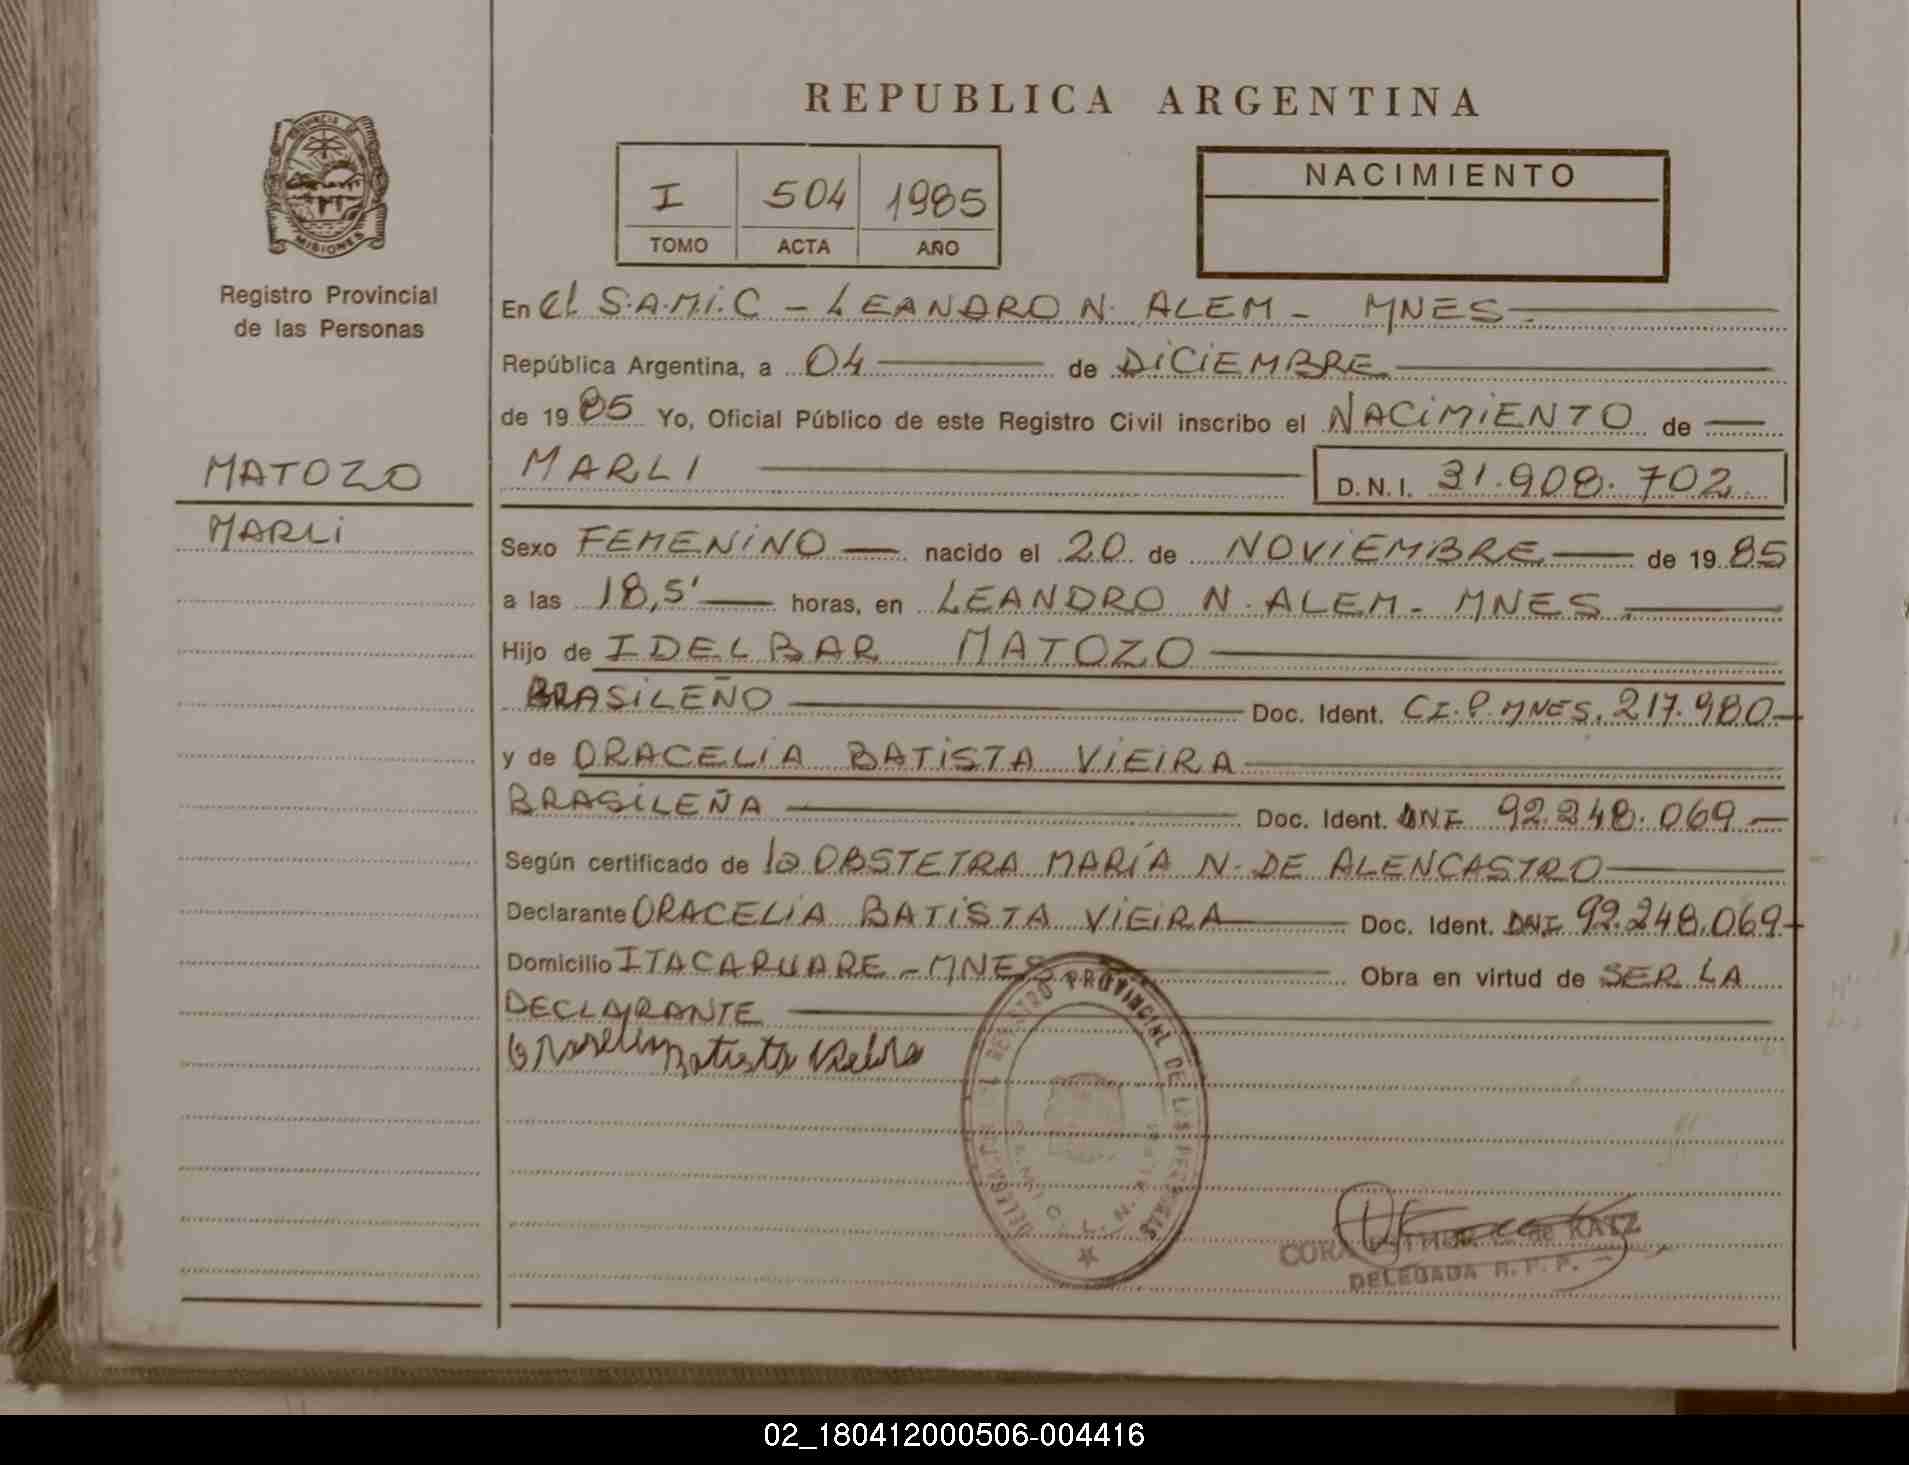 REPUBLICA ARGENTINA
PROVINCIA DE
MISIONES
Registro Provincial
de las Personas
I 504 1985
TOMO ACTA AÑO
NACIMIENTO
En el S.A.Mi.C - LEANDRO N. ALEM - MNES
República Argentina, a 04 de DiCiEMBRE
de 1985 Yo, Oficial Público de este Registro Civil inscribo el NACiMiENTO de
MATOZO
MARLI D.N.I. 31.908.702
MARLi
Sexo FEMENiNO nacido el 20 de NOViEMBRE de 1985
a las 18,5' horas, en LEANDRO N. ALEM - MNES
Hijo de IDELBAR MATOZO
BRASiLEÑO Doc. Ident. CI.P.MNES. 217.980
y de ORACELiA BATiSTA ViEiRA
BRASiLEÑA Doc. Ident. DNI 92.248.069
Según certificado de la OBSTETRA MARÍA N. DE ALENCASTRO
Declarante ORACELiA BATiSTA ViEiRA Doc. Ident. DNI 92.248.069
Domicilio ITACARUARE - MNES Obra en virtud de SER LA
DECLARANTE
Batista Vieira
REGISTRO PROVINCIAL DE LAS PERSONAS
L. N. ALEM
de KATZ
DELEGADA R. P. P.
02_180412000506-004416